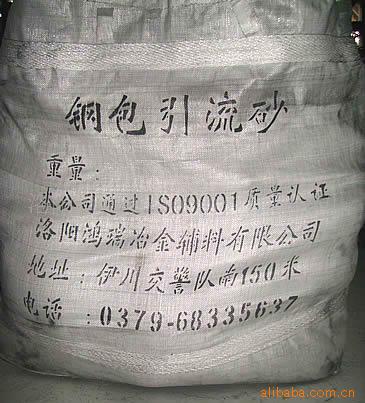 钢包引流砂
重量:
本公司通过ISO9001质量认证
洛阳鸿瑞冶金辅料有限公司
地址:伊川交警队南150米
电话:0379-68335637
alibaba.com.cn